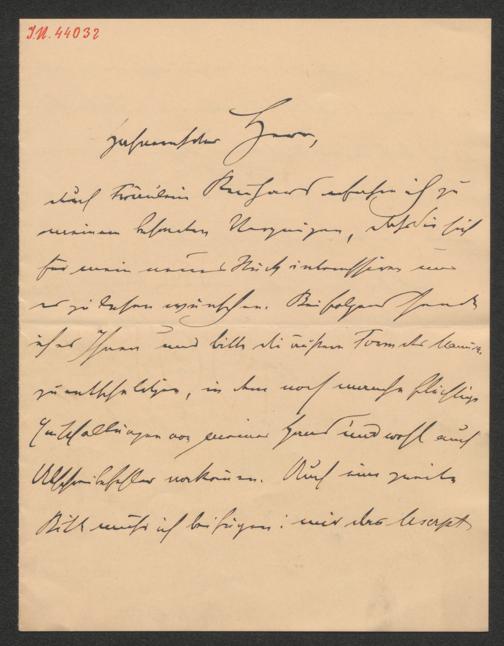 I.N. 44032
geehrter Herr,
durch Fräulein erfahre ich zu
meinem besonderen Vergnügen, daß Sie sich
für mein neues Stück interessiren und
es zu lesen wünschen. Beifolgend sende
ich es Ihnen und bitte die äußere Form des
zu entschuldigen, in dem noch manche flüchtige
Einschaltungen von meiner Hand und wohl auch
Abschreibefehler vorkommen. Auch eine zweite
Bitte muß ich beifügen: mir das